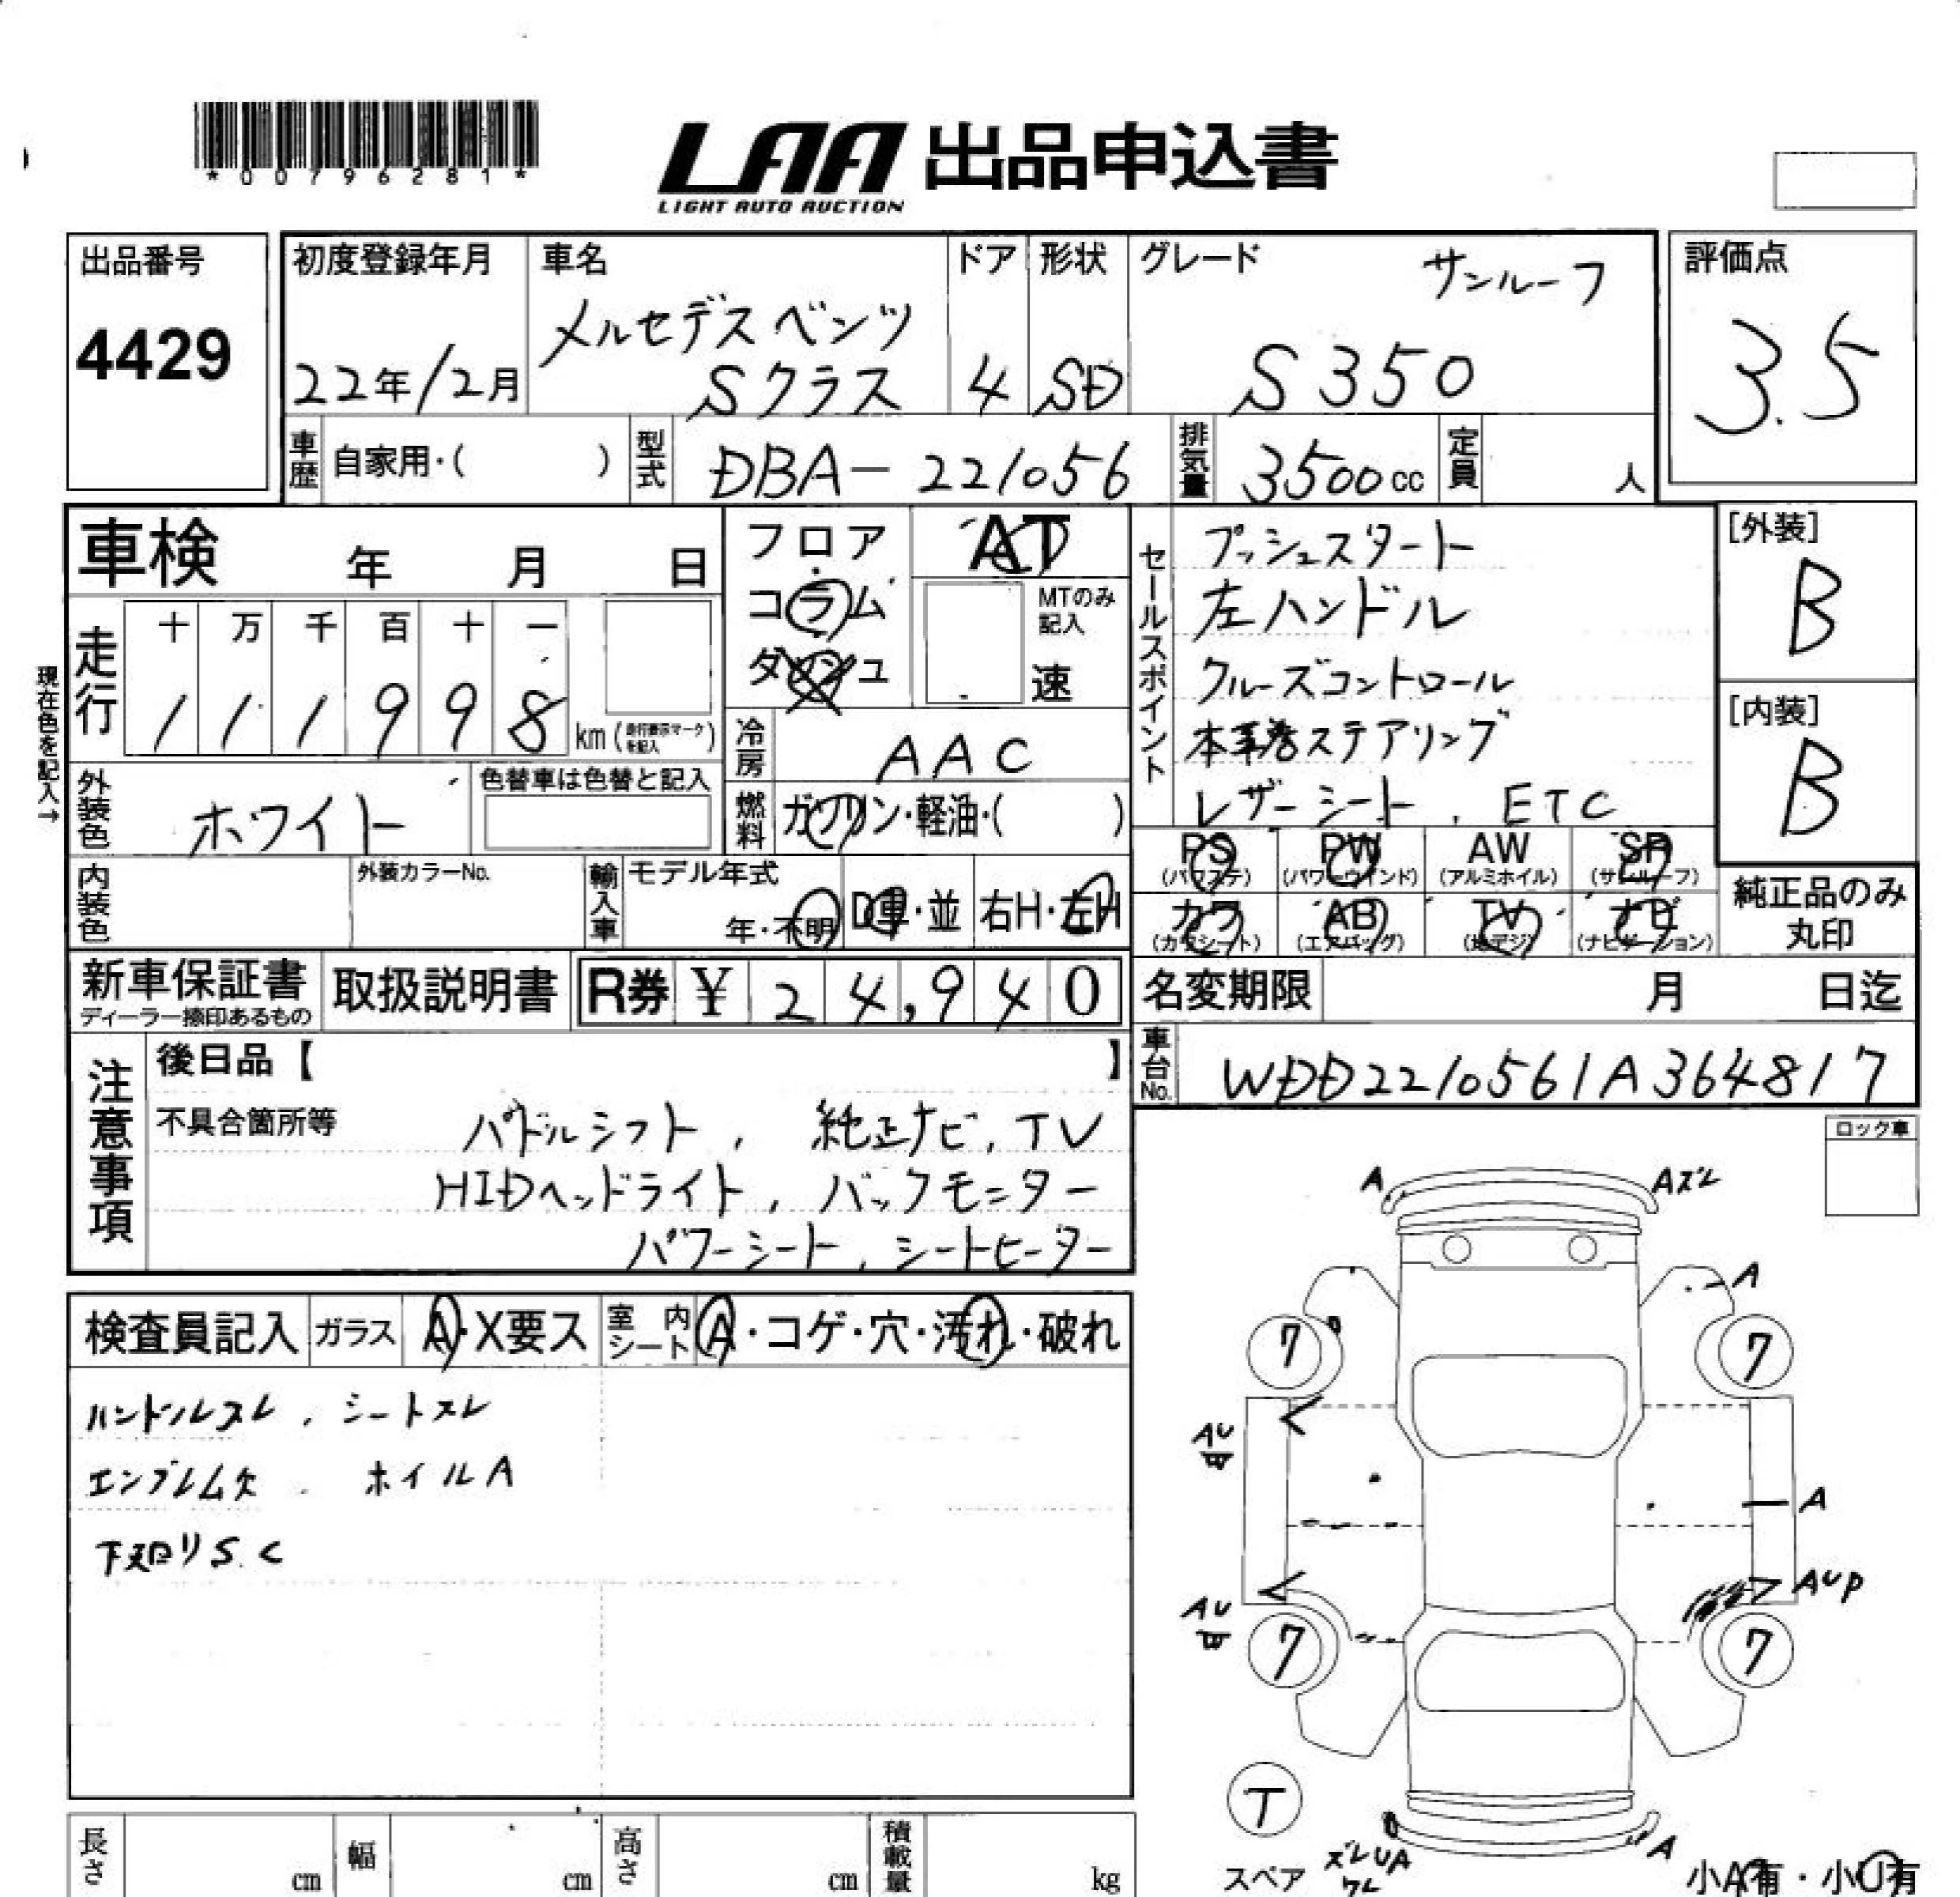 *00796281*
LAA 出品申込書
LIGHT AUTO AUCTION
出品番号
4429
初度登録年月
22年12月
車名
メルセデスベンツ
Sクラス
ドア
4
形状
SD
グレード
サンルーフ
S350
評価点
3.5
車歴
自家用・( )
型式
DBA-221056
排気量
3500cc
定員
人
車検 年 月 日
現在色を記入→
走行
十 万 千 百 十 一
1 1 1 9 9 8 km
フロア
コラム
ダッシュ
AT
MTのみ
記入
速
冷房
AAC
燃料
ガソリン・軽油・( )
外装色
ホワイト
色替車は色替と記入
内装色
外装カラーNo.
輸入車
モデル年式
年・不明
D車・並
右H・左H
セールスポイント
プッシュスタート
左ハンドル
クルーズコントロール
本革巻ステアリング
レザーシート, ETC
[外装]
B
[内装]
B
PS
(パワステ)
PW
(パワーウインド)
AW
(アルミホイル)
SR
(サンルーフ)
カワ
(カワシート)
AB
(エアバッグ)
TV
(地デジ)
ナビ
(ナビゲーション)
純正品のみ
丸印
新車保証書
ディーラー捺印あるもの
取扱説明書
R券 ¥ 24,940
名変期限 月 日迄
車台No.
WDD2210561A364817
注意事項
後日品【 】
不具合箇所等
パドルシフト, 純正ナビ, TV
HIDヘッドライト, バックモニター
パワーシート, シートヒーター
ロック車
検査員記入
ガラス
A・X要ス
室内
シート
A・コゲ・穴・汚れ・破れ
ハンドルスレ, シートスレ
エンブレム欠, ホイルA
下廻りS.C
A
Aズレ
A
7
7
AU
A
AU
AUP
7
7
T
スペア
ズレUA
ワレ
A
小A有・小U有
長さ cm
幅 cm
高さ cm
積載量 kg